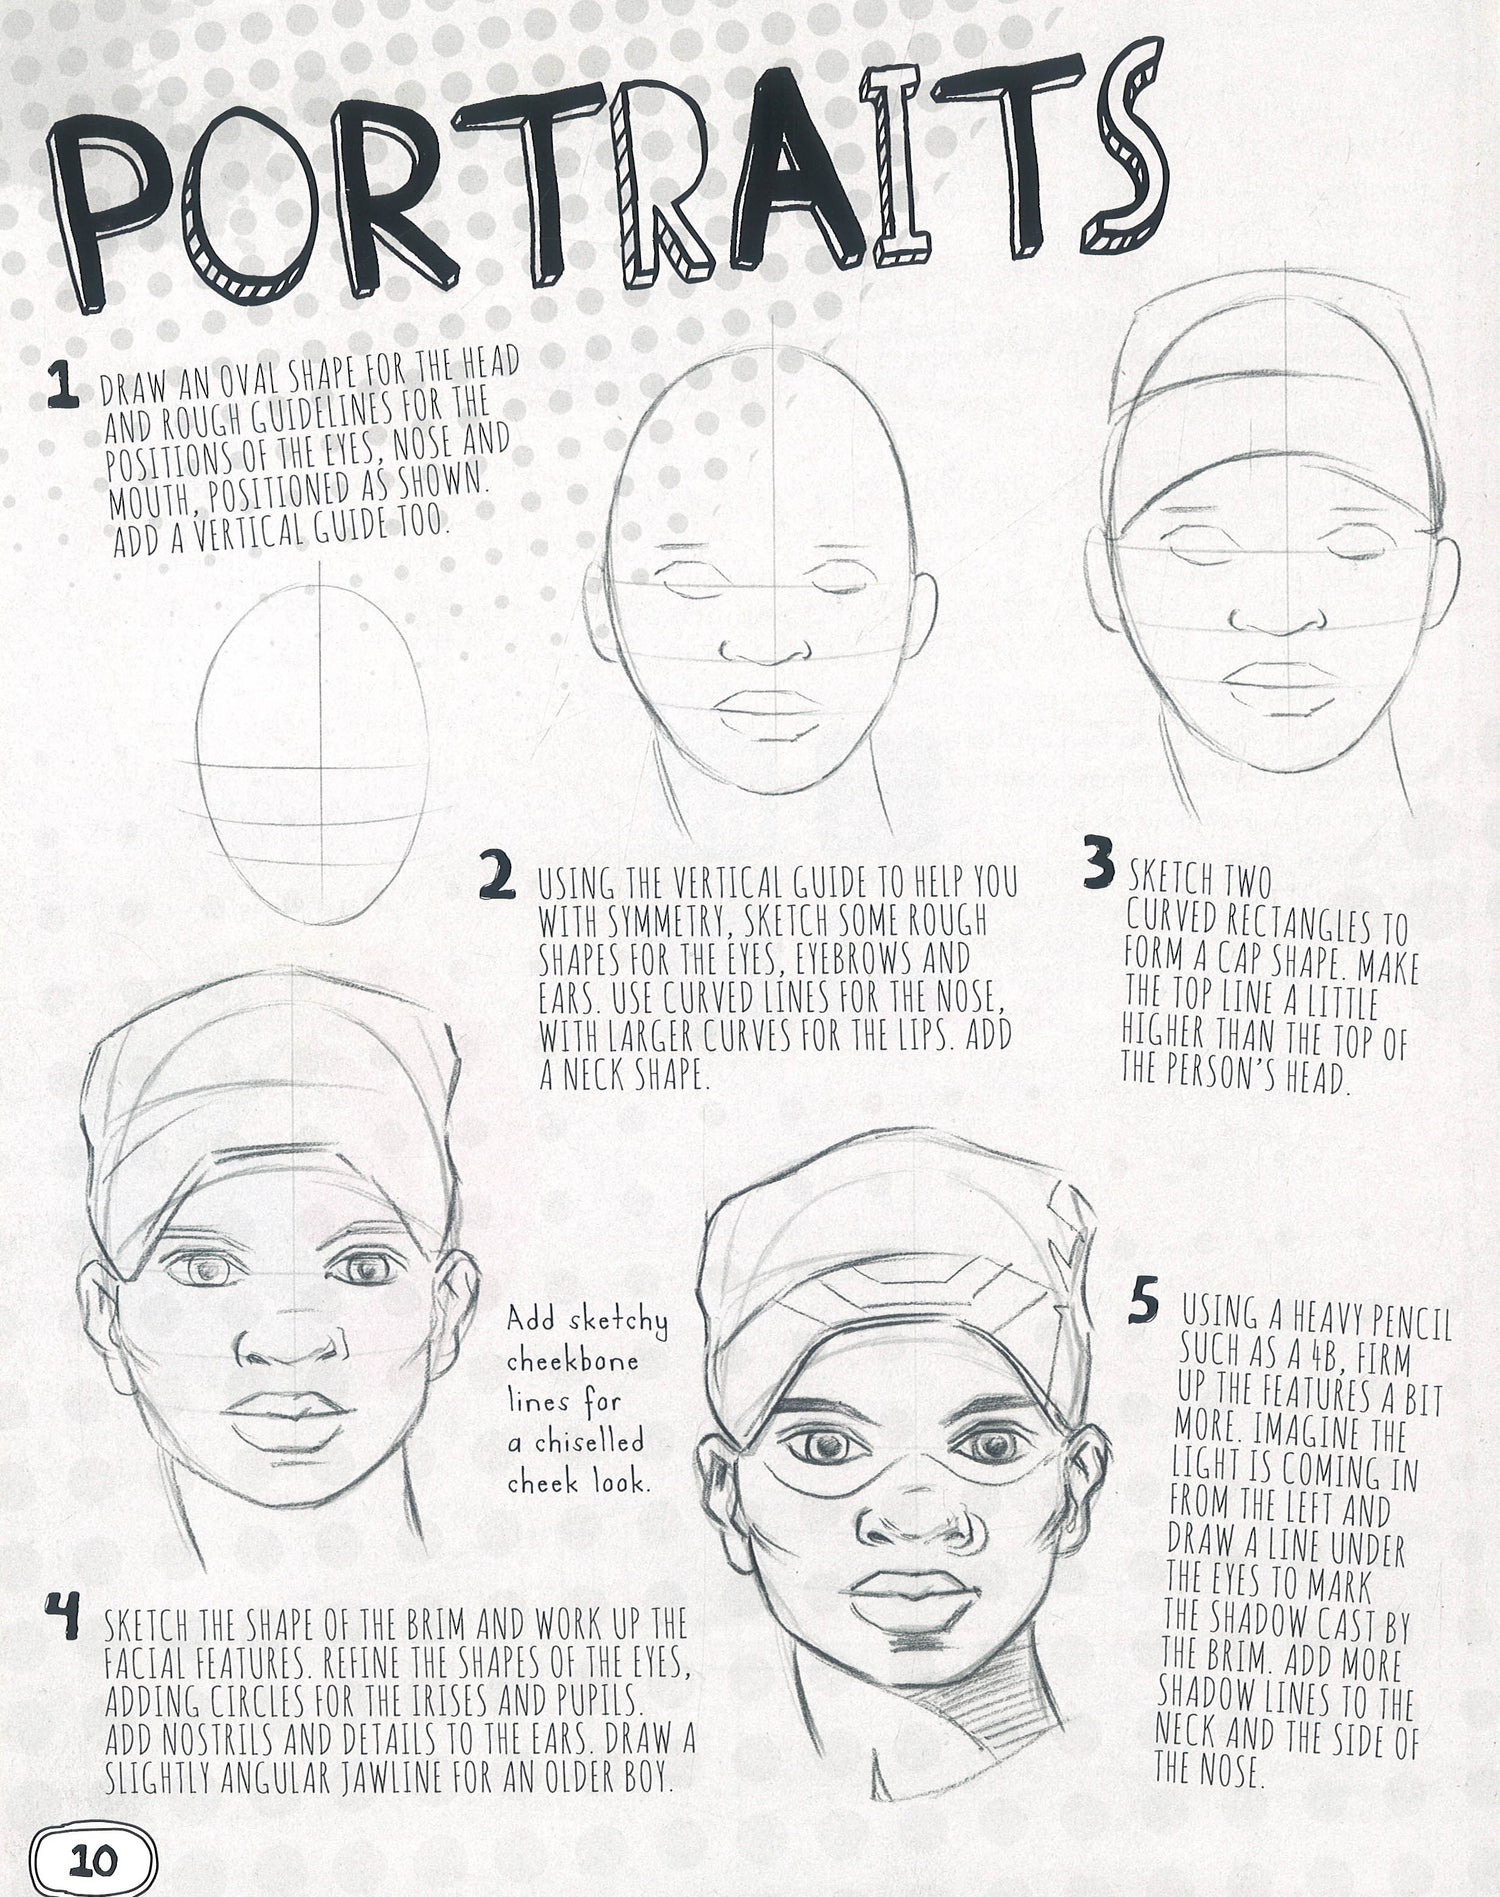 PORTRAITS
1 DRAW AN OVAL SHAPE FOR THE HEAD
AND ROUGH GUIDELINES FOR THE
POSITIONS OF THE EYES, NOSE AND
MOUTH, POSITIONED AS SHOWN.
ADD A VERTICAL GUIDE TOO.
2 USING THE VERTICAL GUIDE TO HELP YOU
WITH SYMMETRY, SKETCH SOME ROUGH
SHAPES FOR THE EYES, EYEBROWS AND
EARS. USE CURVED LINES FOR THE NOSE,
WITH LARGER CURVES FOR THE LIPS. ADD
A NECK SHAPE.
3 SKETCH TWO
CURVED RECTANGLES TO
FORM A CAP SHAPE. MAKE
THE TOP LINE A LITTLE
HIGHER THAN THE TOP OF
THE PERSON'S HEAD.
Add sketchy
cheekbone
lines for
a chiselled
cheek look.
4 SKETCH THE SHAPE OF THE BRIM AND WORK UP THE
FACIAL FEATURES. REFINE THE SHAPES OF THE EYES,
ADDING CIRCLES FOR THE IRISES AND PUPILS.
ADD NOSTRILS AND DETAILS TO THE EARS. DRAW A
SLIGHTLY ANGULAR JAWLINE FOR AN OLDER BOY.
5 USING A HEAVY PENCIL
SUCH AS A 4B, FIRM
UP THE FEATURES A BIT
MORE. IMAGINE THE
LIGHT IS COMING IN
FROM THE LEFT AND
DRAW A LINE UNDER
THE EYES TO MARK
THE SHADOW CAST BY
THE BRIM. ADD MORE
SHADOW LINES TO THE
NECK AND THE SIDE OF
THE NOSE.
10